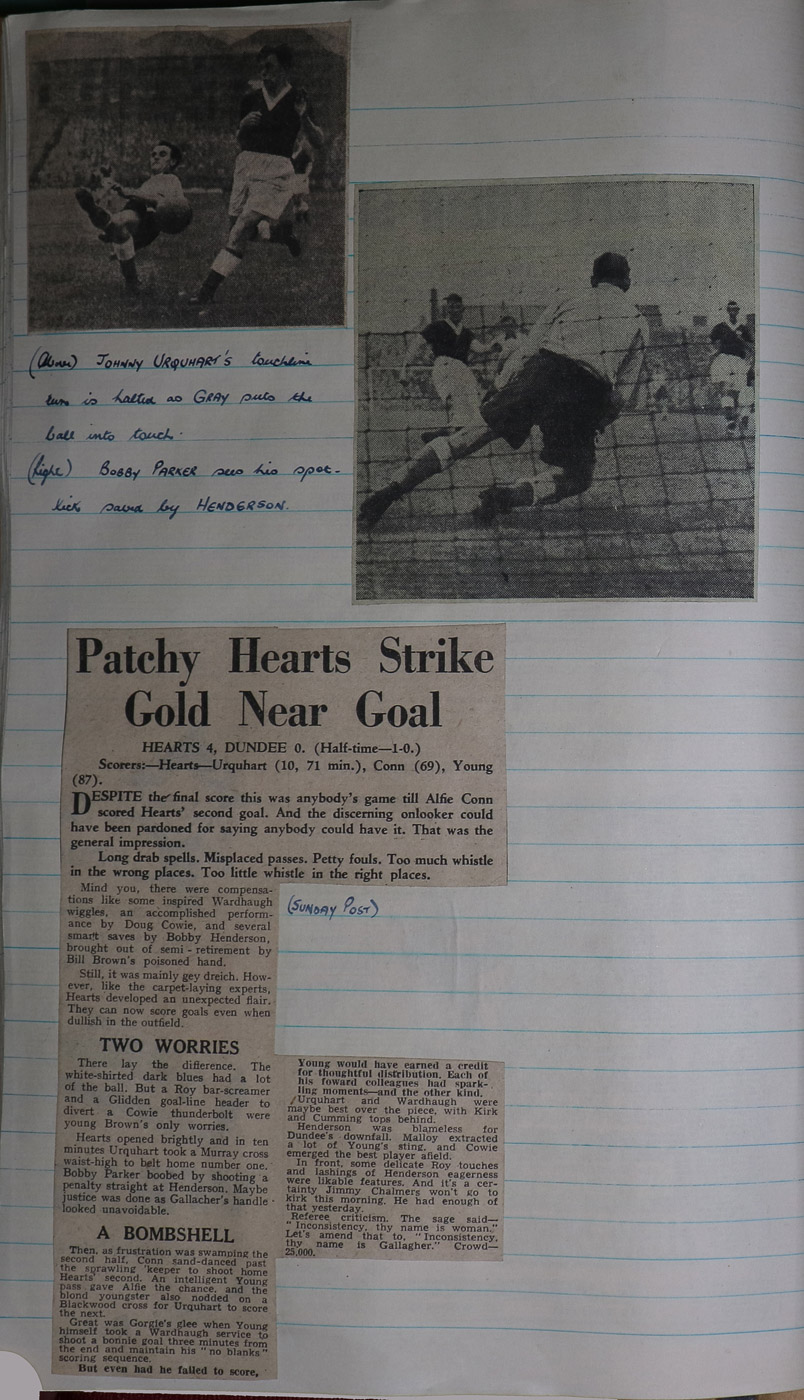 (Above) JOHNNY URQUHART'S touchline
run is halted as GRAY puts the
ball into touch.
(Right) BOBBY PARKER sees his spot-
kick saved by HENDERSON.
Patchy Hearts Strike
Gold Near Goal
HEARTS 4, DUNDEE 0. (Half-time—1-0.)
Scorers:—Hearts—Urquhart (10, 71 min.), Conn (69), Young
(87).
DESPITE the final score this was anybody's game till Alfie Conn
scored Hearts' second goal. And the discerning onlooker could
have been pardoned for saying anybody could have it. That was the
general impression.
Long drab spells. Misplaced passes. Petty fouls. Too much whistle
in the wrong places. Too little whistle in the right places.
Mind you, there were compensa-
tions like some inspired Wardhaugh
wiggles, an accomplished perform-
ance by Doug Cowie, and several
smart saves by Bobby Henderson,
brought out of semi-retirement by
Bill Brown's poisoned hand.
Still, it was mainly gey dreich. How-
ever, like the carpet-laying experts,
Hearts developed an unexpected flair.
They can now score goals even when
dullish in the outfield.
TWO WORRIES
There lay the difference. The
white-shirted dark blues had a lot
of the ball. But a Roy bar-screamer
and a Glidden goal-line header to
divert a Cowie thunderbolt were
young Brown's only worries.
Hearts opened brightly and in ten
minutes Urquhart took a Murray cross
waist-high to belt home number one.
Bobby Parker boobed by shooting a
penalty straight at Henderson. Maybe
justice was done as Gallacher's handle
looked unavoidable.
A BOMBSHELL
Then, as frustration was swamping the
second half, Conn sand-danced past
the sprawling 'keeper to shoot home
Hearts' second. An intelligent Young
pass gave Alfie the chance, and the
blond youngster also nodded on a
Blackwood cross for Urquhart to score
the next.
Great was Gorgie's glee when Young
himself took a Wardhaugh service to
shoot a bonnie goal three minutes from
the end and maintain his "no blanks"
scoring sequence.
But even had he failed to score,
(SUNDAY POST)
Young would have earned a credit
for thoughtful distribution. Each of
his foward colleagues had spark-
ling moments—and the other kind.
Urquhart and Wardhaugh were
maybe best over the piece, with Kirk
and Cumming tops behind.
Henderson was blameless for
Dundee's downfall. Malloy extracted
a lot of Young's sting, and Cowie
emerged the best player afield.
In front, some delicate Roy touches
and lashings of Henderson eagerness
were likable features. And it's a cer-
tainty Jimmy Chalmers won't go to
kirk this morning. He had enough of
that yesterday.
Referee criticism. The sage said—
"Inconsistency, thy name is woman."
Let's amend that to, "Inconsistency,
thy name is Gallagher." Crowd—
25,000.